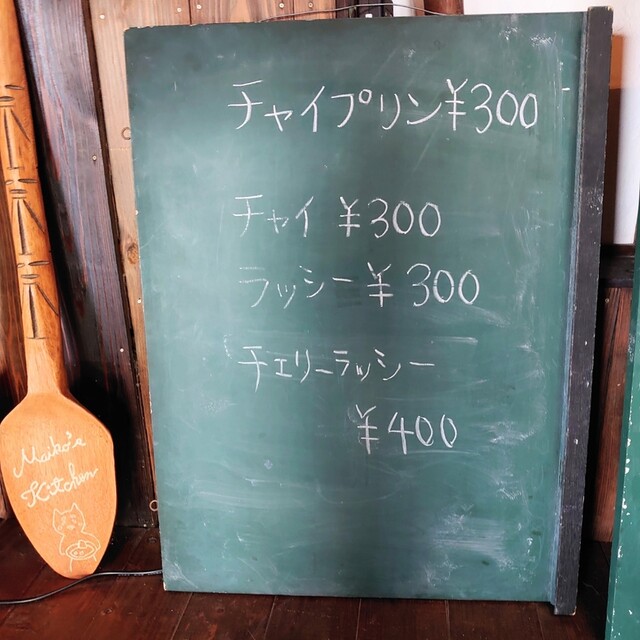 チャイプリン¥300
チャイ ¥300
ラッシー ¥300
チェリーラッシー
¥400
Maiko's
Kitchen